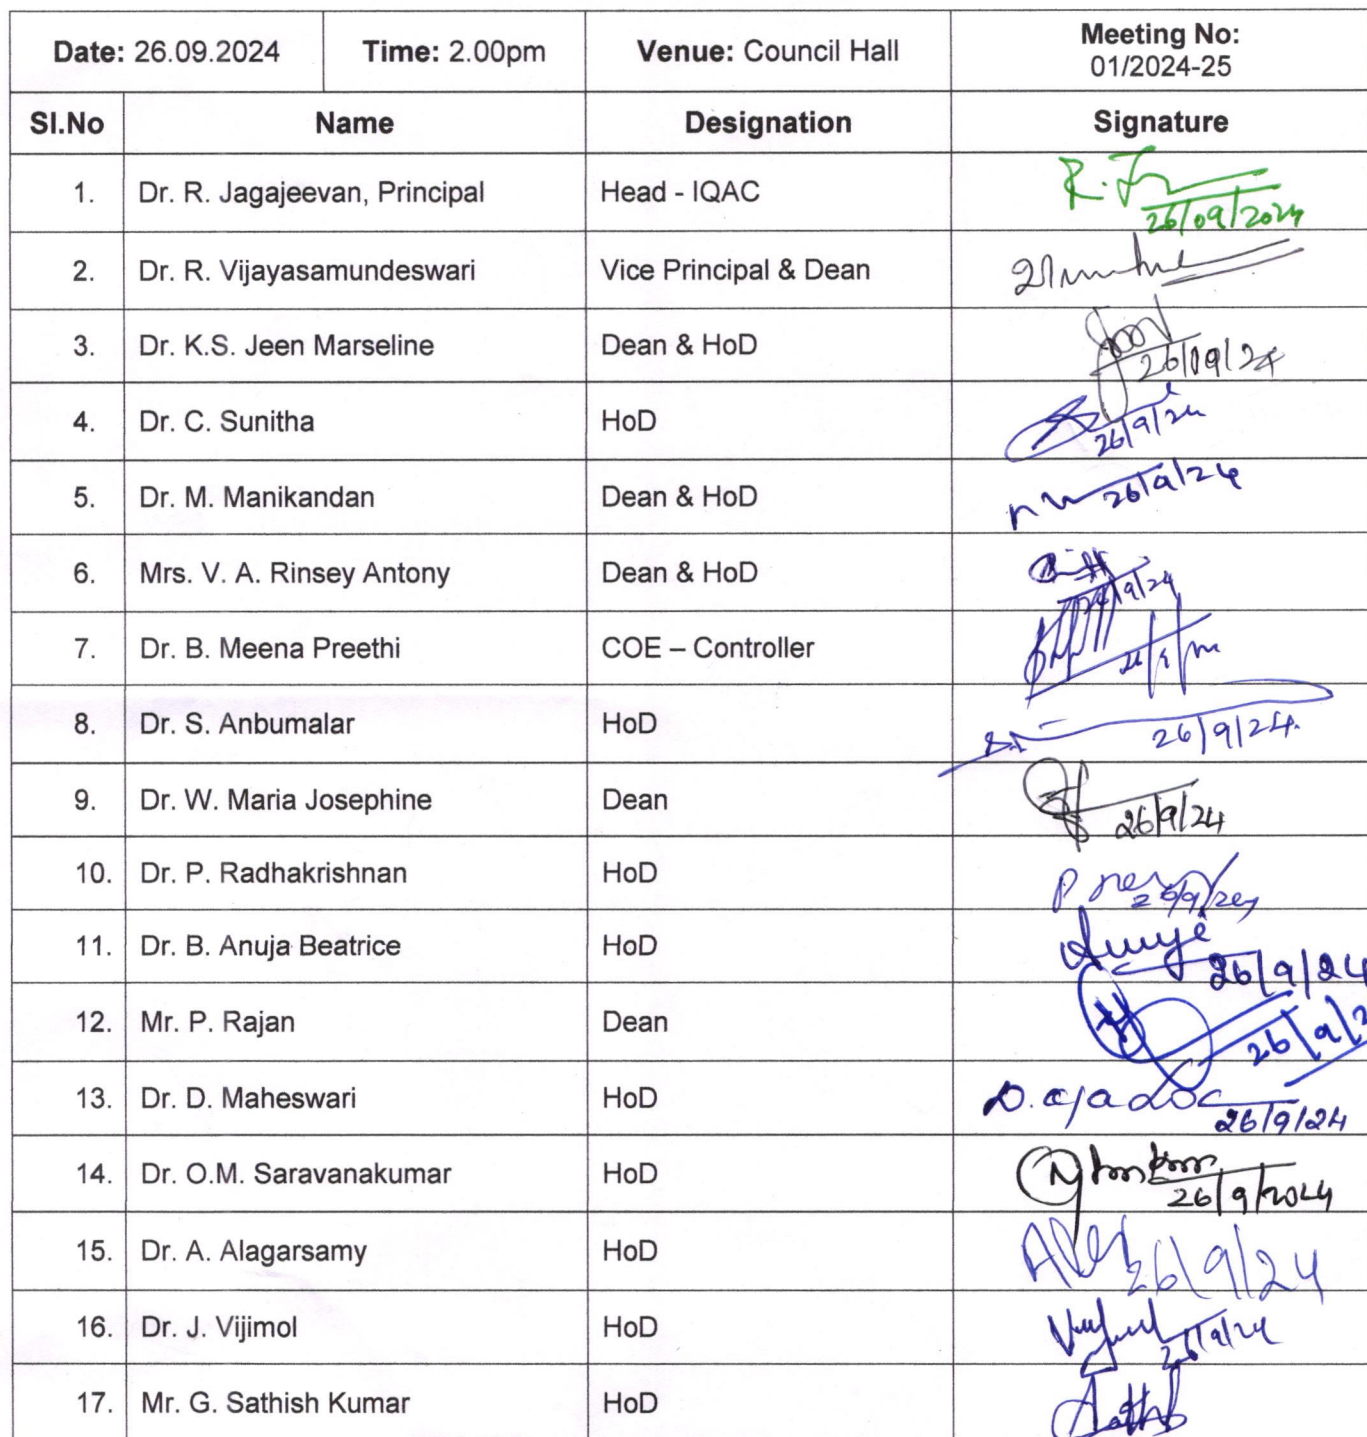 Date: 26.09.2024 Time: 2.00pm Venue: Council Hall Meeting No:
01/2024-25
Sl.No Name Designation Signature
1. Dr. R. Jagajeevan, Principal Head - IQAC
26/09/2024
2. Dr. R. Vijayasamundeswari Vice Principal & Dean
3. Dr. K.S. Jeen Marseline Dean & HoD 26/09/24
4. Dr. C. Sunitha HoD 26/9/24
5. Dr. M. Manikandan Dean & HoD 26/9/24
6. Mrs. V. A. Rinsey Antony Dean & HoD
7. Dr. B. Meena Preethi COE – Controller
8. Dr. S. Anbumalar HoD 26/9/24.
9. Dr. W. Maria Josephine Dean 26/9/24
10. Dr. P. Radhakrishnan HoD 26/9/24
11. Dr. B. Anuja Beatrice HoD 26/9/24
12. Mr. P. Rajan Dean 26/9/2
13. Dr. D. Maheswari HoD 26/9/24
14. Dr. O.M. Saravanakumar HoD 26/9/2024
15. Dr. A. Alagarsamy HoD 26/9/24
16. Dr. J. Vijimol HoD 26/9/24
17. Mr. G. Sathish Kumar HoD